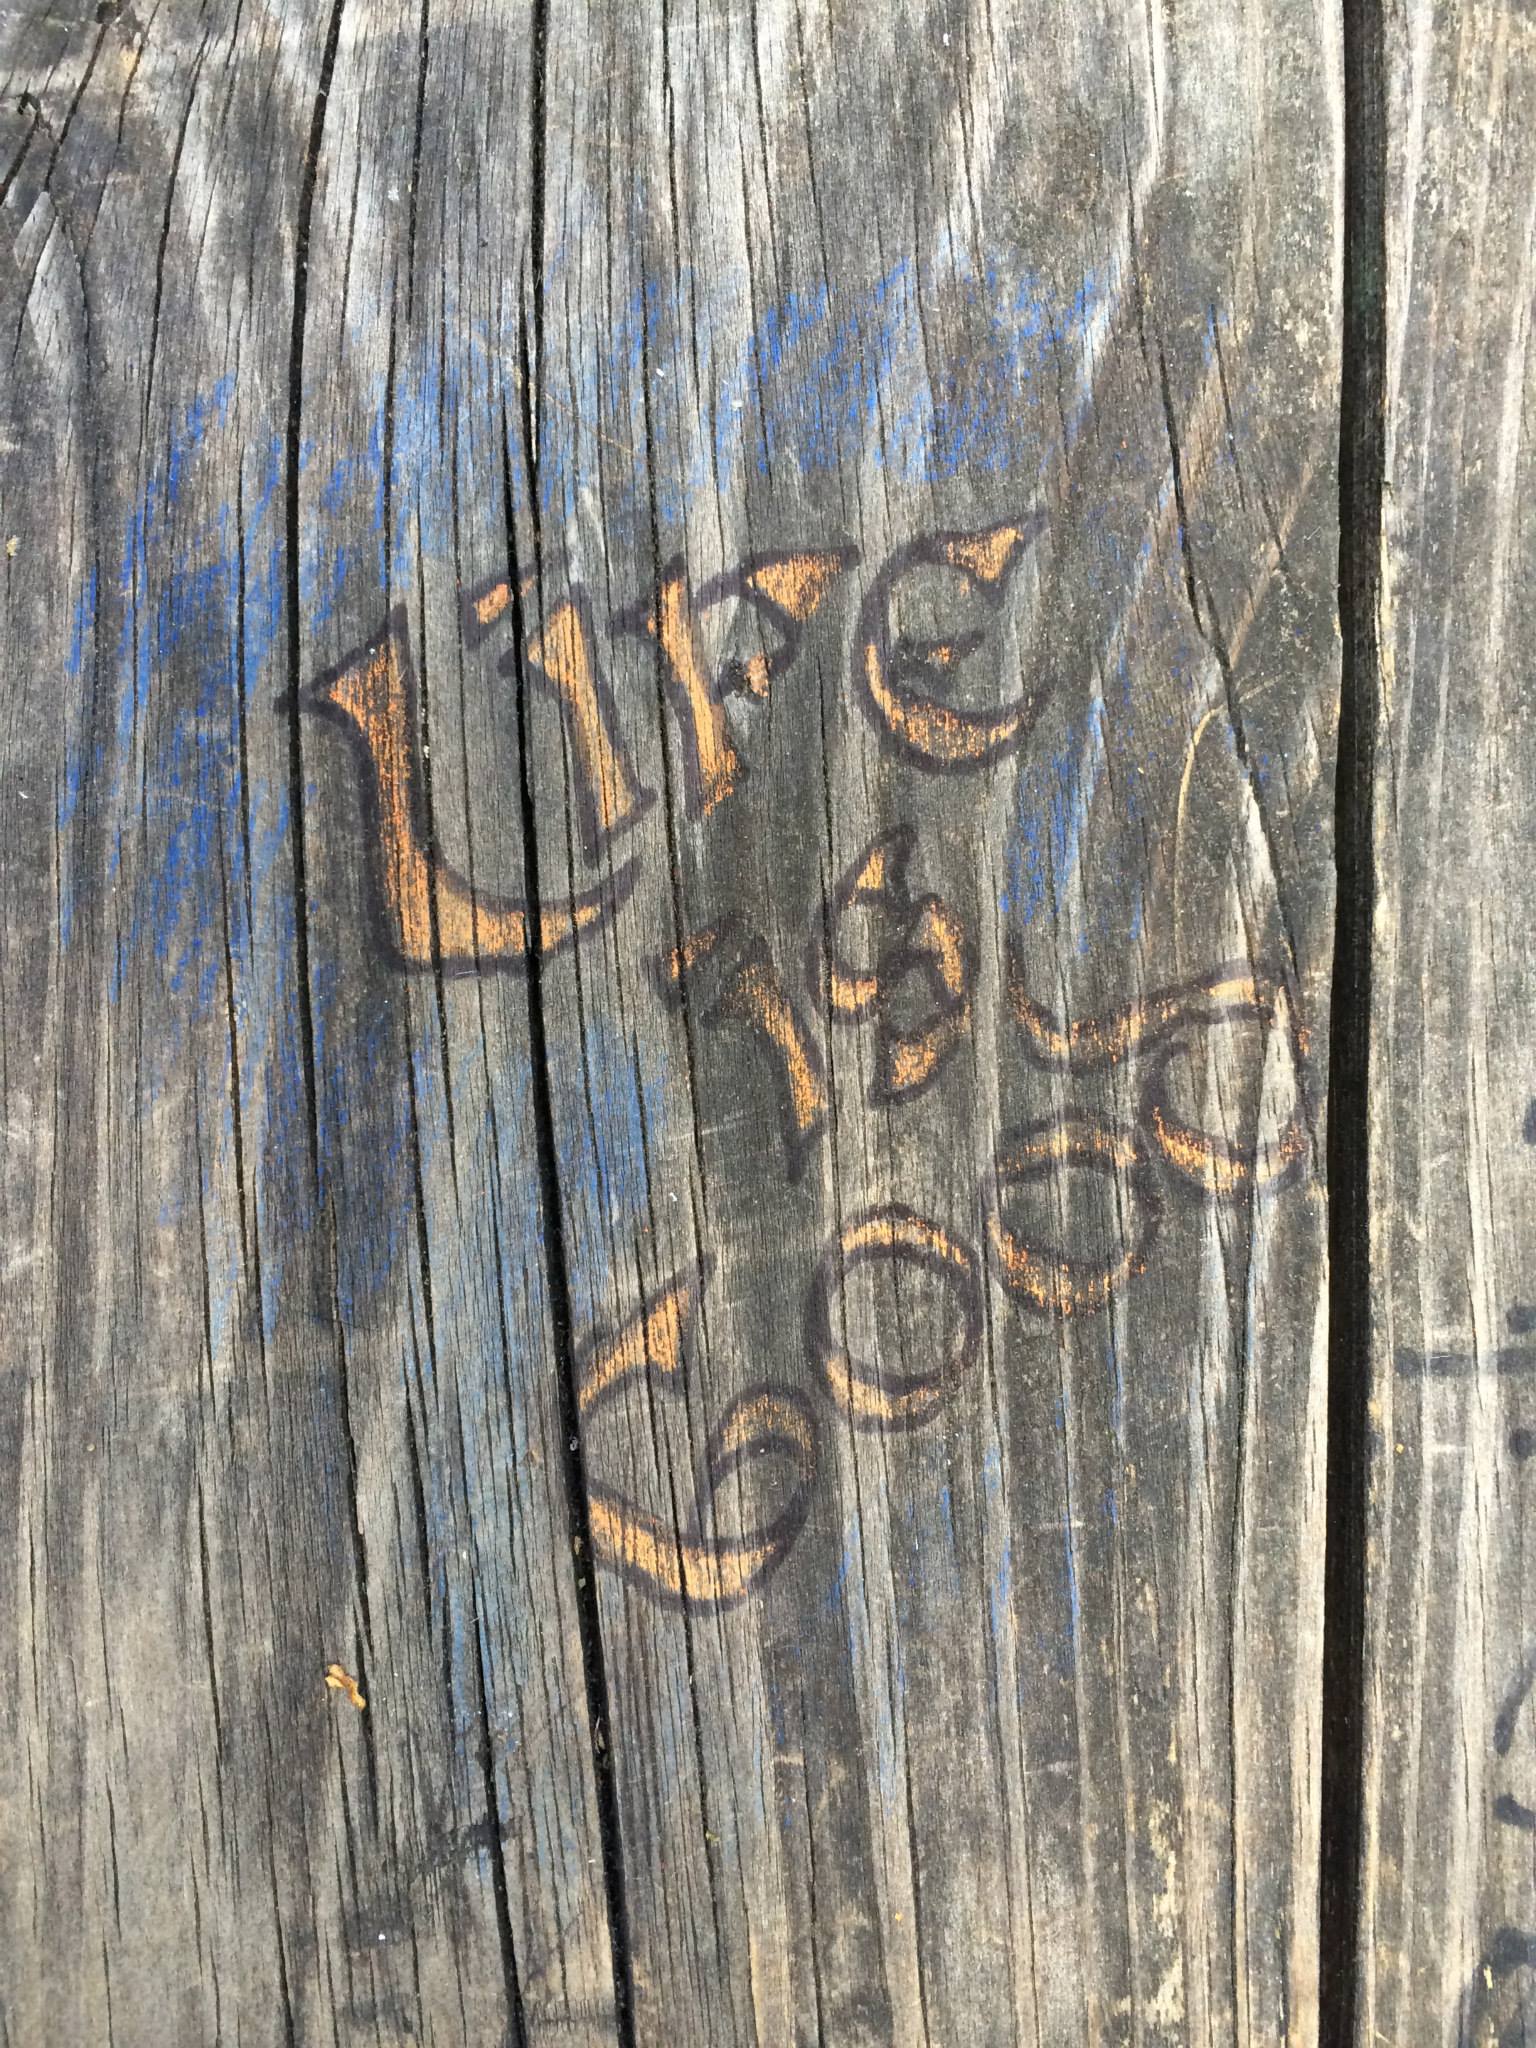 LIFE
IS
GOOD